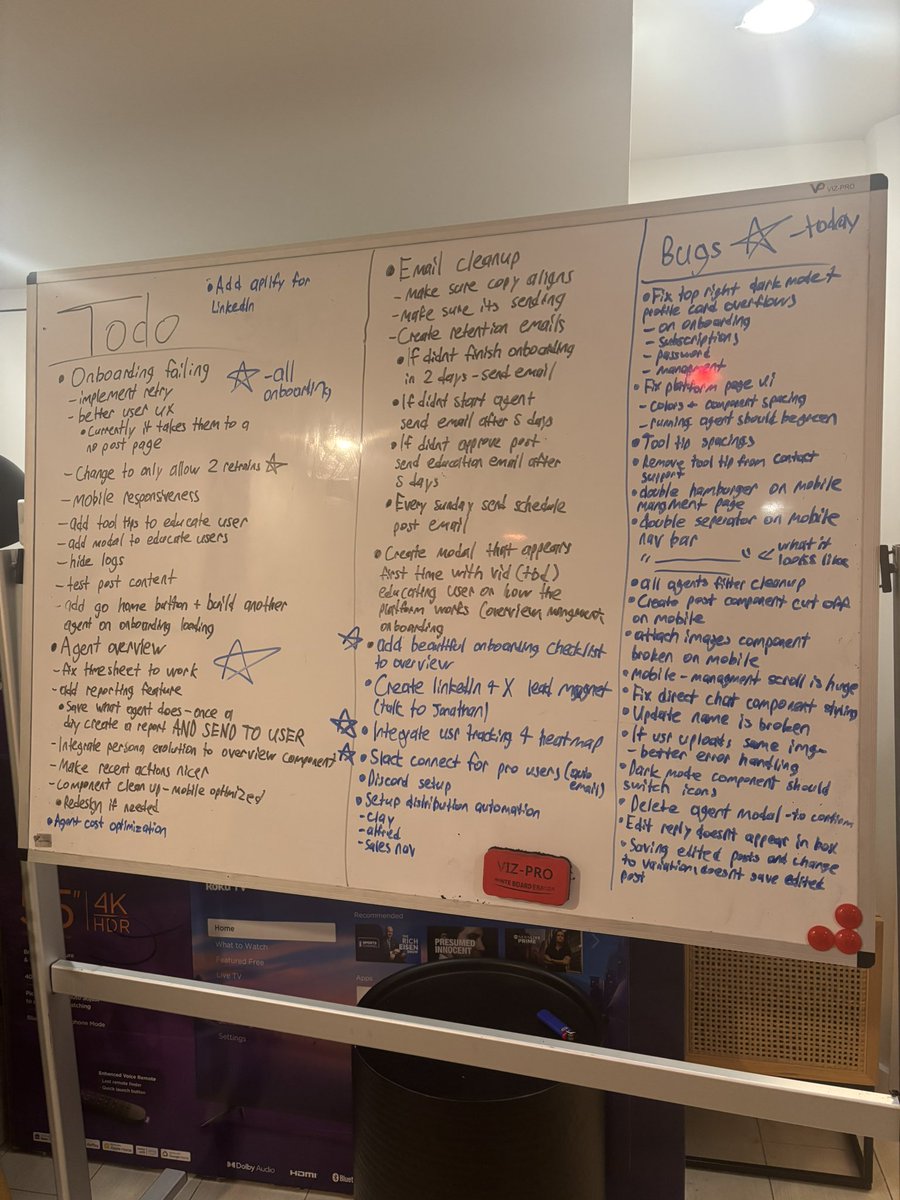 VP VIZ-PRO
Todo
• Add aplify for
LinkedIn
• Onboarding failing
- implement retry
☆ -all
onboarding
- better user ux
• Currently it takes them to a
no post page
- Change to only allow 2 retrains ☆
- Mobile responsiveness
- add tool tips to educate user
- add modal to educate users
- hide logs
- test post content
- add go home button + build another
agent on onboarding loading
• Agent overview
- fix timesheet to work
- add reporting feature
• Save what agent does - once a
day create a report AND SEND TO USER
- Integrate persona evolution to overview component
- Make recent actions nicer
- Component clean up - mobile optimized
• Redesign if needed
• Agent cost optimization
• Email cleanup
- make sure copy aligns
- make sure its sending
- Create retention emails
• If didnt finish onboarding
in 2 days - send email
• If didnt start agent
send email after 5 days
• If didnt approve post
send education email after
5 days
• Every sunday send schedule
post email
• Create Modal that appears
first time with vid (tbd)
educating user on how the
platform works (overview, mangment,
onboarding
☆ • add beautiful onboarding checklist
to overview
• Create linkedIn + X lead magnet
(talk to Jonathan)
☆ • Integrate usr tracking + heatmap
☆ • Slack connect for pro users (auto
email)
• Discord setup
• Setup distribution automation
- clay
- alfred
- sales nav
Bugs ☆ -today
• Fix top right dark mode +
profile card overflows
- on onboarding
- subscriptions
- password
- managment
• Fix platform page ui
- colors + component spacing
- running agent should be green
• Tool tip spacings
• Remove tool tip from contact
support
• double hamburger on mobile
mangment page
• double seperator on mobile
nav bar
" " ← what it
looks like
• all agents filter cleanup
• Create post component cut off
on mobile
• attach images component
broken on mobile
• Mobile - managment scroll is huge
• Fix direct chat component styling
• Update name is broken
• If usr uploads same img -
- better error handling
• Dark mode component should
switch icons
• Delete agent modal - to confirm
• Edit reply doesn't appear in box
• Saving edited posts and change
to variation, doesn't save edited
post
VIZ-PRO
WHITE BOARD ERASER
55" 4K
HDR
Roku TV
Home
What to Watch
Featured Free
Live TV
Settings
Recommended
THE
RICH
EISEN
SHOW
PRESUMED
INNOCENT
Apps
Enhanced Voice Remote
Lost remote finder
Quick launch button
Dolby Audio
HDMI